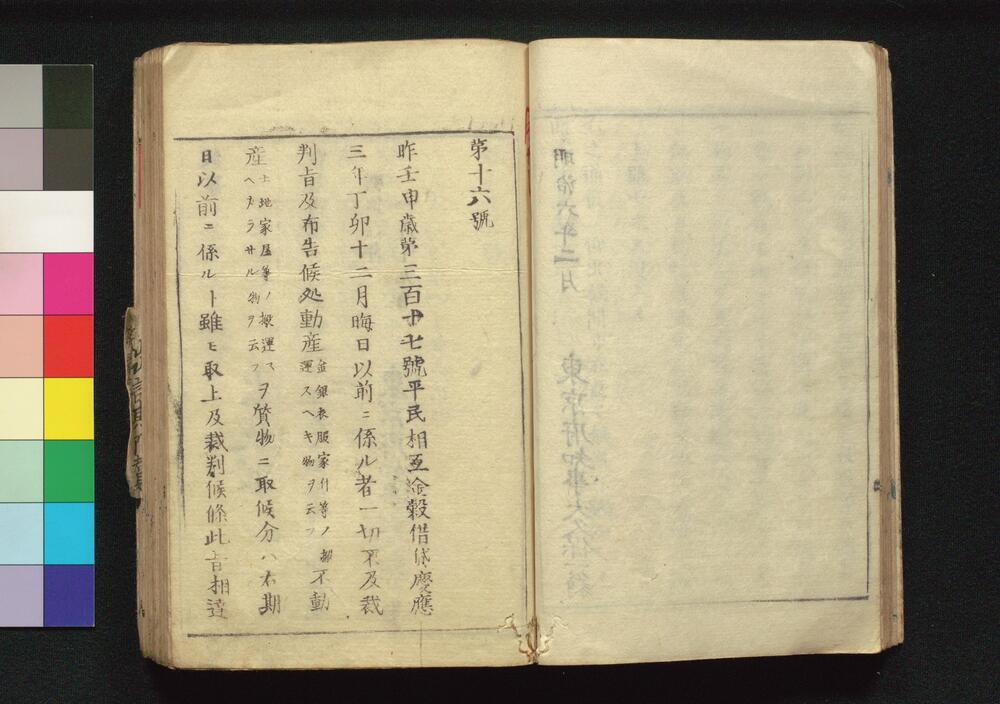 第十六號
昨壬申歳第三百十七號平民相互金穀借貸慶應
三年丁卯十二月晦日以前ニ係ル者一切不及裁
判旨及布告候処動産金銀衣服家什等ノ搬運スヘキ物ヲ云フ不動
産土地家屋等ノ搬運スヘカラサル物ヲ云フヲ質物ニ取候分ハ右期
日以前ニ係ルト雖モ取上及裁判候條此旨相達
明治六年二月
東京府知事大久保一翁